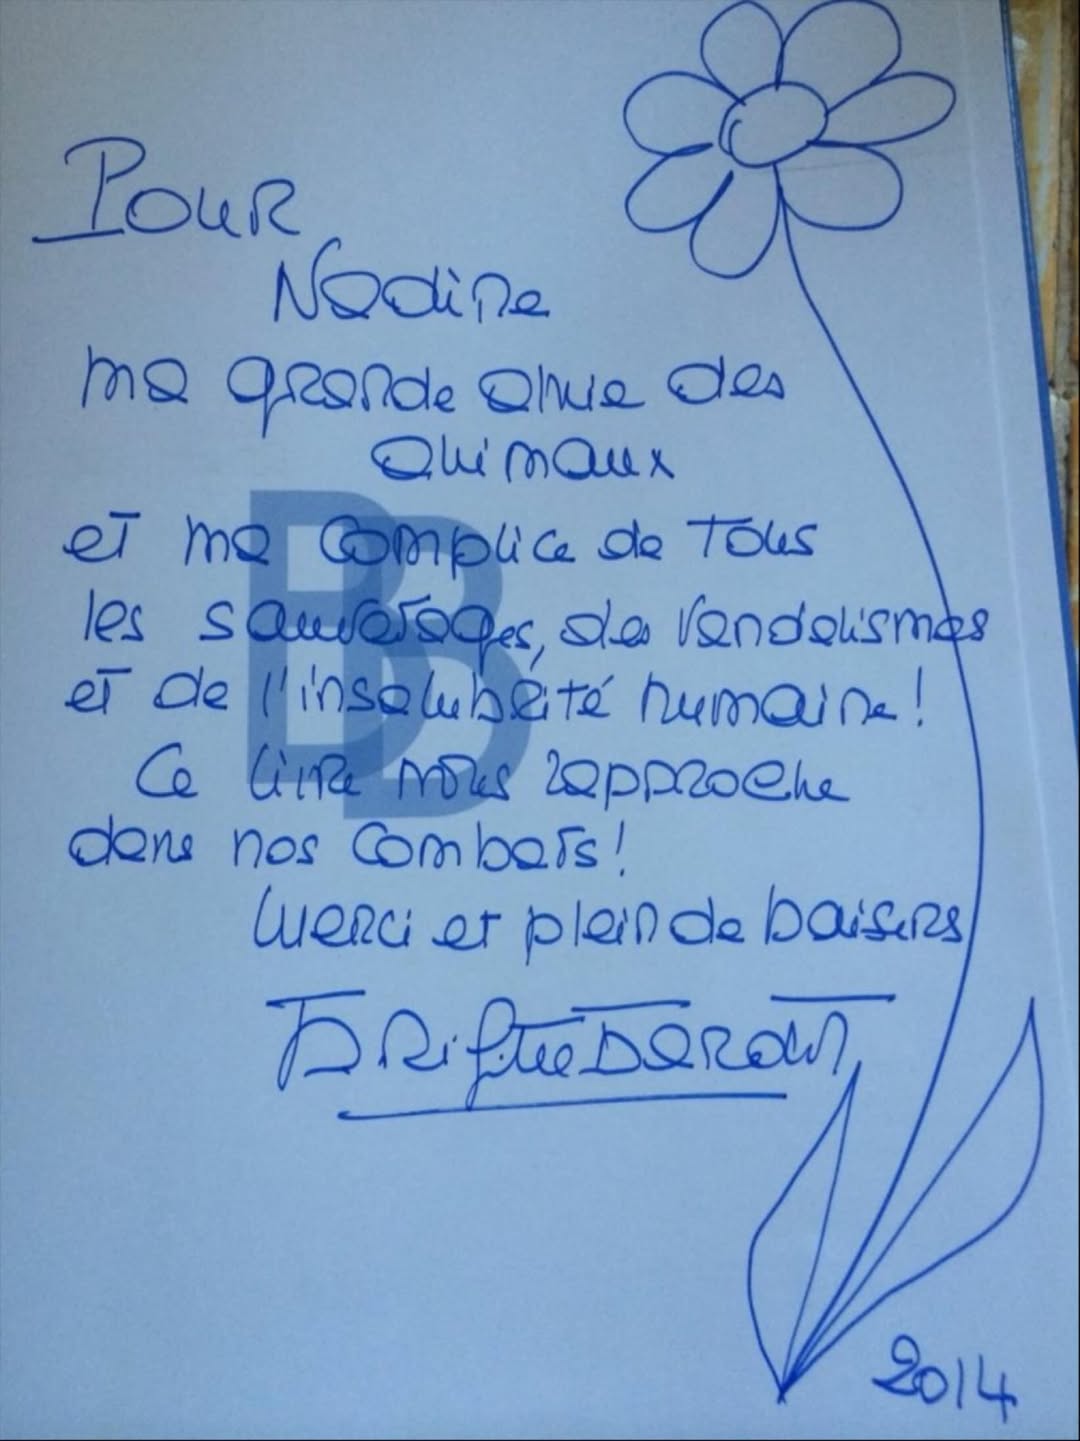 Pour
Nadine
ma grande amie des
animaux
et ma complice de tous
les sauvetages, des vandalismes
et de l'insalubrité humaine!
Ce livre nous rapproche
dans nos combats!
Merci et plein de baisers
Brigitte Bardot
BB
2014